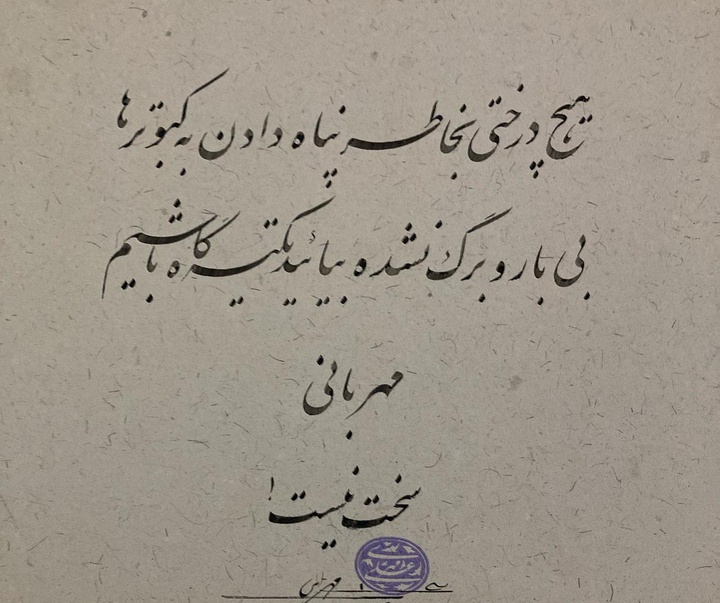 هیچ درختی بخاطر پناه دادن به کبوترها
بی بار و برگ نشده بیائید تکیه گاه باشیم
مهربانی
سخت نیست!